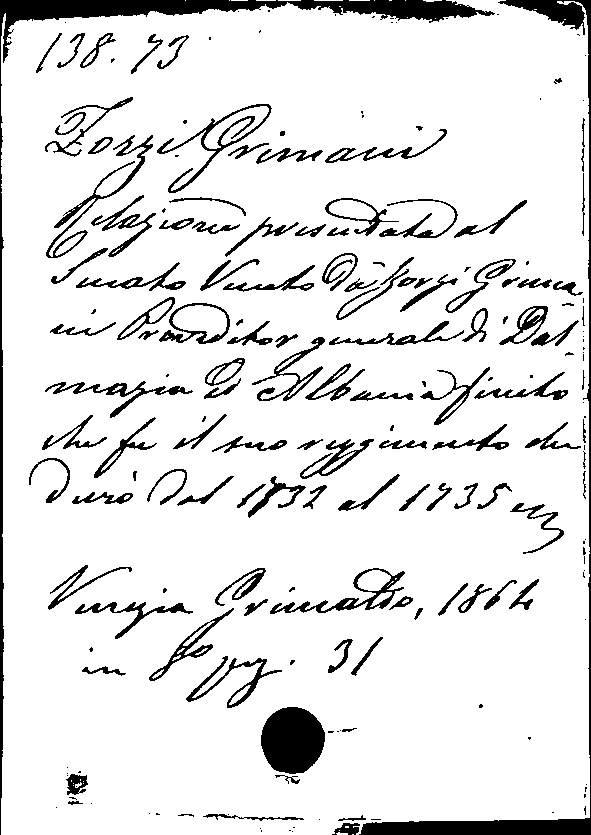 138.73
Zorzi Grimani
Relazione presentata al
Senato Veneto da Zorzi Grima
ni Proveditor generale di Dal-
mazia ed Albania finito
che fu il suo reggimento che
durò dal 1732 al 1735
Venezia Grimaldo, 1864
in 8º pag. 31